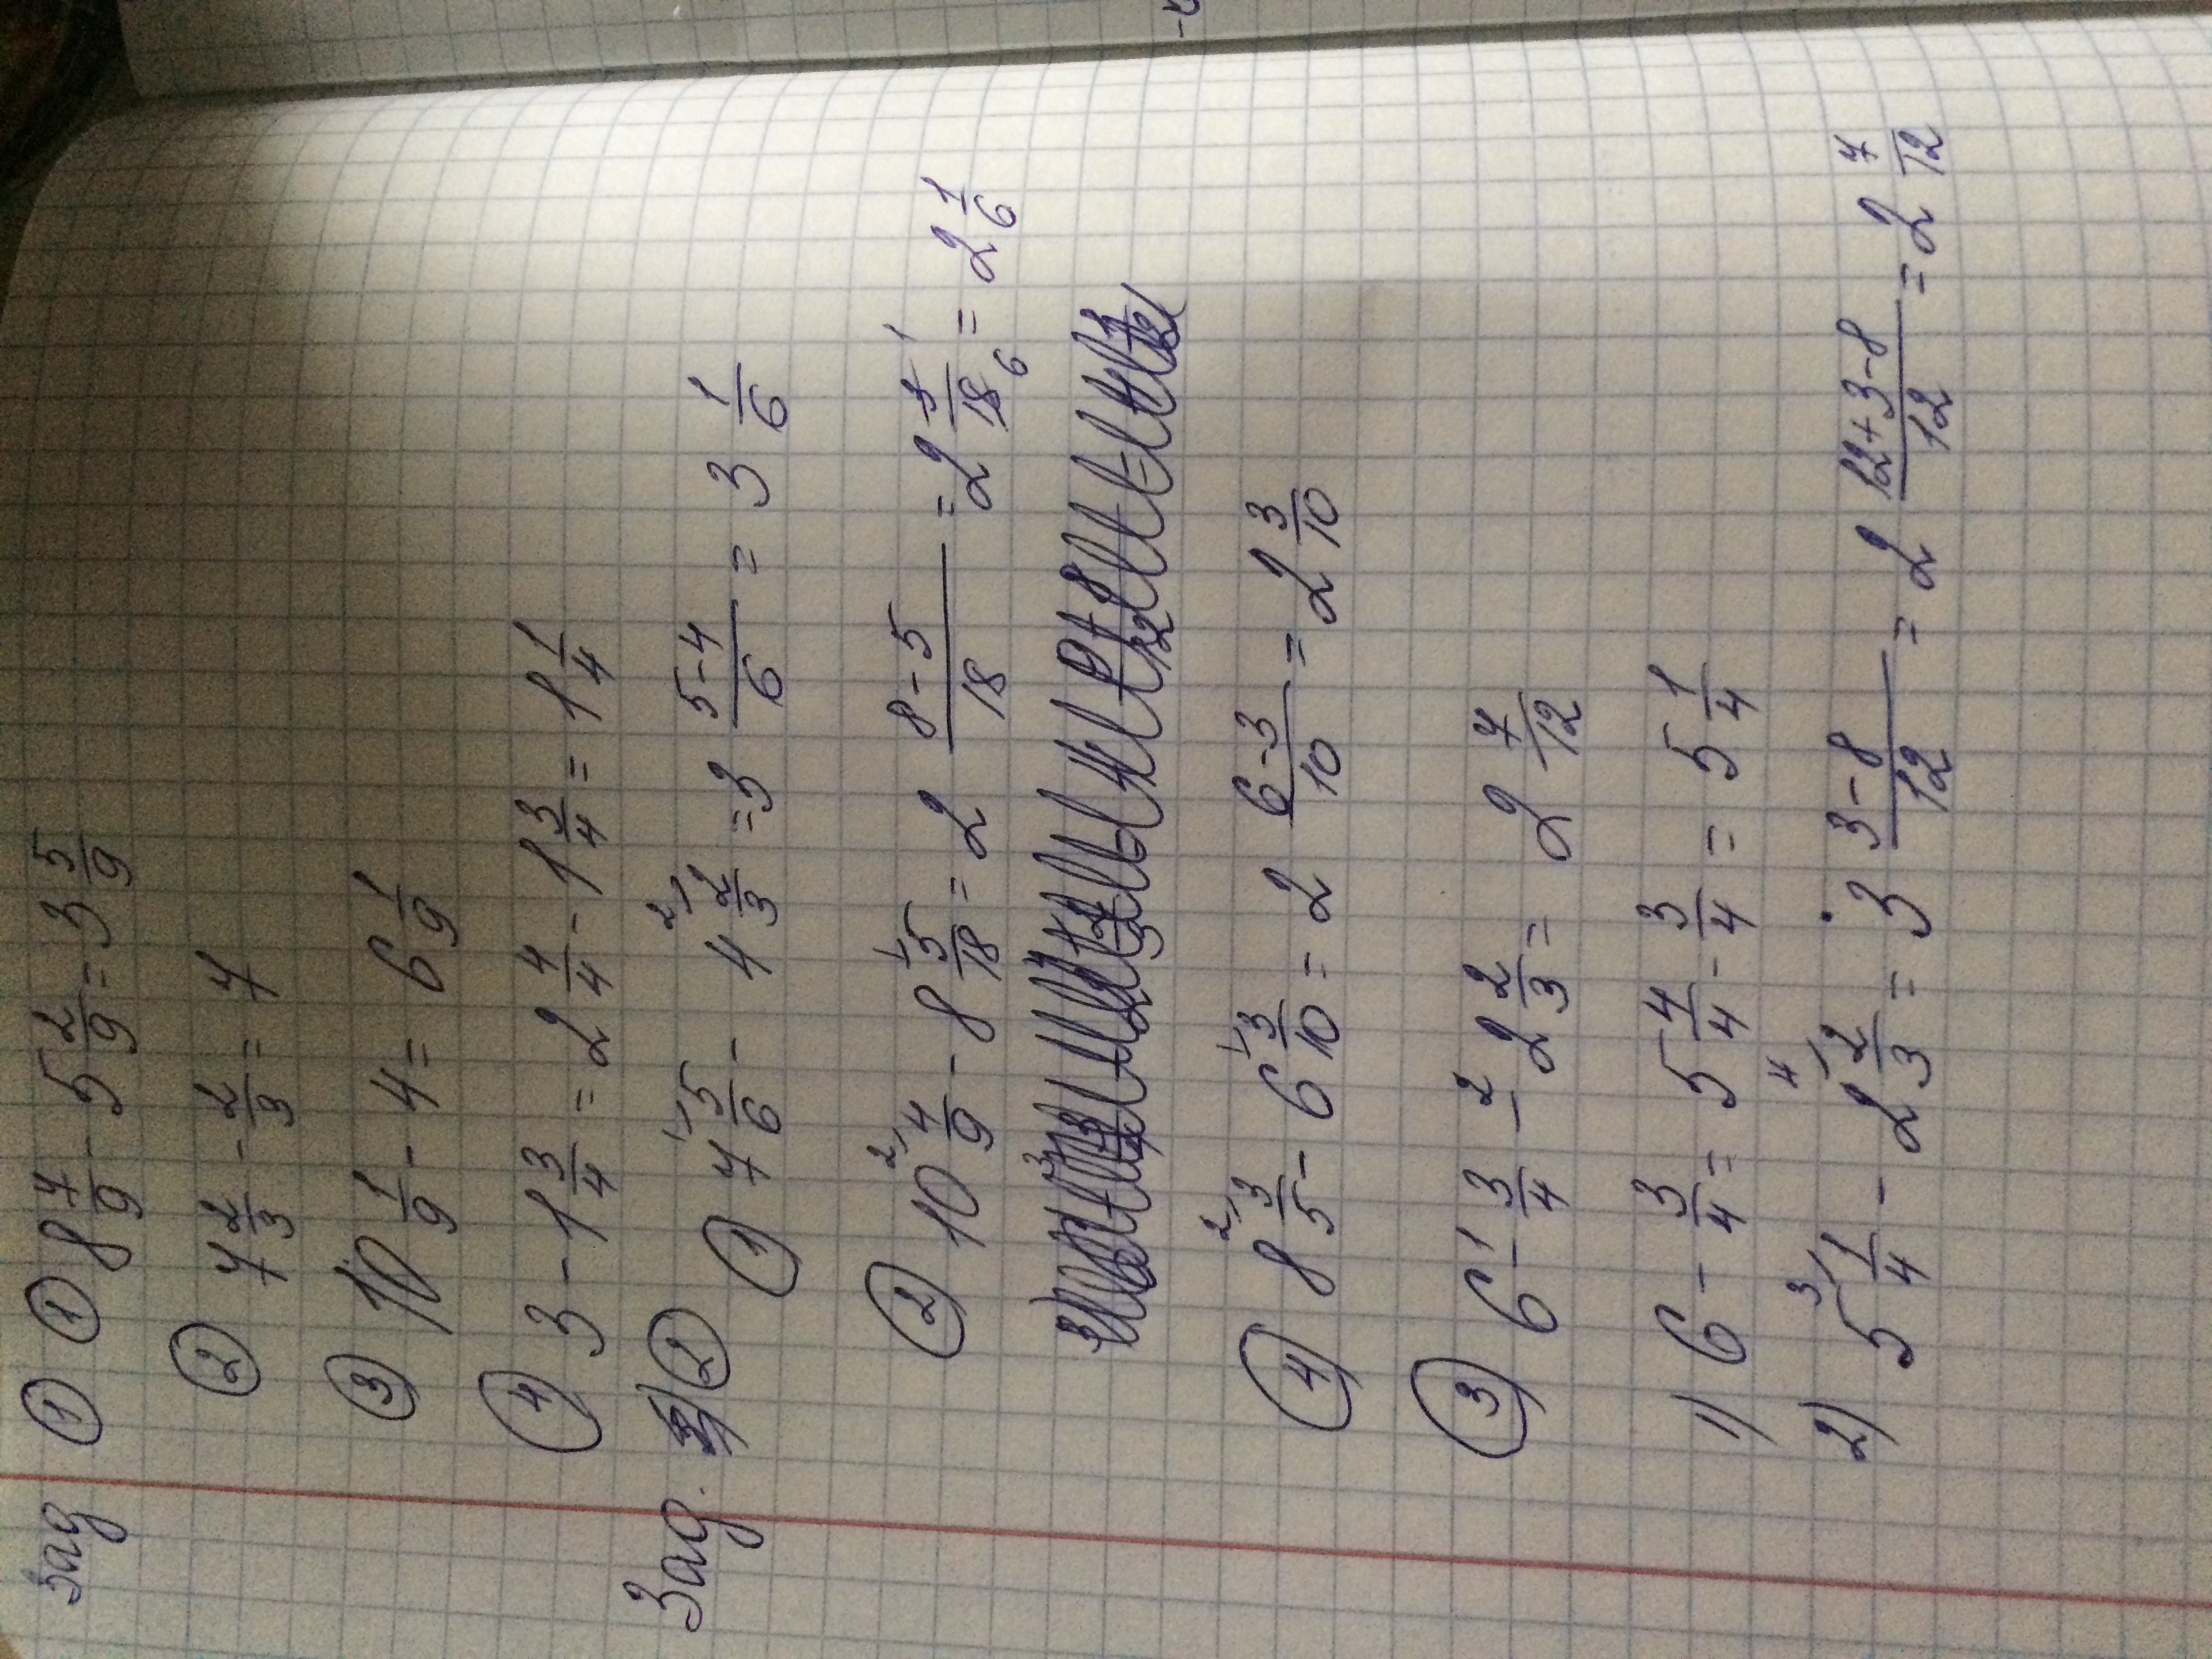 Зад ① ① 8 7/9 - 5 2/9 = 3 5/9
② 7 2/3 - 2/3 = 7
③ 10 1/9 - 4 = 6 1/9
④ 3 - 1 3/4 = 2 4/4 - 1 3/4 = 1 1/4
Зад. ②
① 7 5/6 - 4 2/3 = 3 (5-4)/6 = 3 1/6
② 10 4/9 - 8 5/18 = 2 (8-5)/18 = 2 3/18 = 2 1/6
④ 8 3/5 - 6 3/10 = 2 (6-3)/10 = 2 3/10
③ 6 - 3/4 - 2 2/3 = 2 7/12
1) 6 - 3/4 = 5 4/4 - 3/4 = 5 1/4
2) 5 1/4 - 2 2/3 = 3 (3-8)/12 = 2 (12+3-8)/12 = 2 7/12